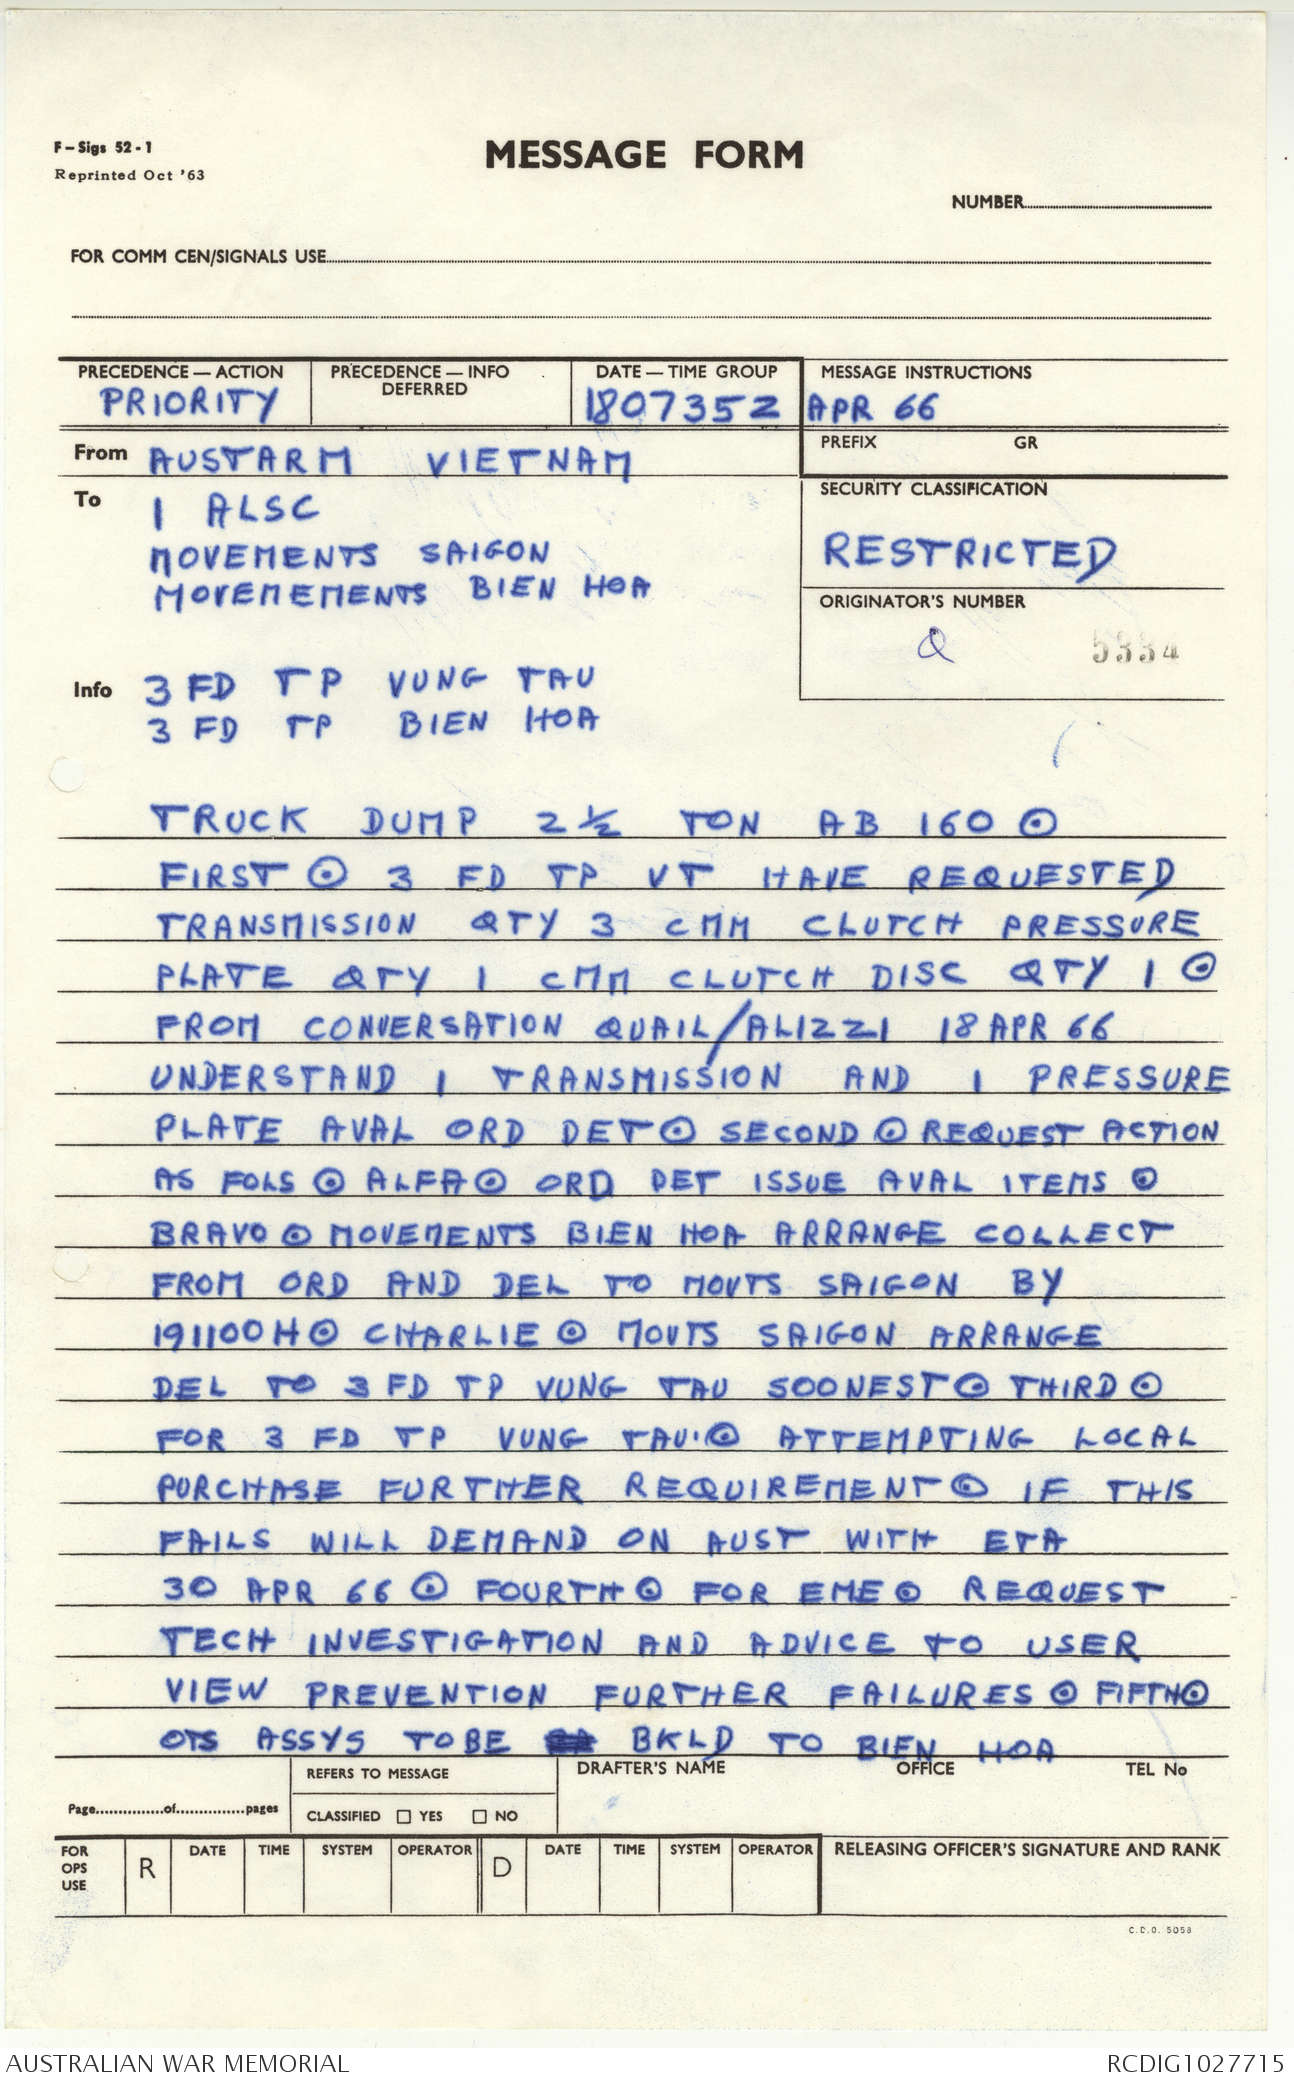 F - Sigs 52 - 1
Reprinted Oct '63
MESSAGE FORM
NUMBER
FOR COMM CEN/SIGNALS USE
PRECEDENCE — ACTION
PRIORITY
PRECEDENCE — INFO
DEFERRED
DATE — TIME GROUP
180735Z
MESSAGE INSTRUCTIONS
APR 66
From AUSTARM VIETNAM
PREFIX GR
To 1 ALSC
MOVEMENTS SAIGON
MOVEMEMENTS BIEN HOA
SECURITY CLASSIFICATION
RESTRICTED
ORIGINATOR'S NUMBER
Q 5334
Info 3 FD TP VUNG TAU
3 FD TP BIEN HOA
TRUCK DUMP 2 ½ TON AB 160 ⊙
FIRST ⊙ 3 FD TP VT HAVE REQUESTED
TRANSMISSION QTY 3 CMM CLUTCH PRESSURE
PLATE QTY 1 CMM CLUTCH DISC QTY 1 ⊙
FROM CONVERSATION QUAIL/ALIZZI 18 APR 66
UNDERSTAND 1 TRANSMISSION AND 1 PRESSURE
PLATE AVAL ORD DET ⊙ SECOND ⊙ REQUEST ACTION
AS FOLS ⊙ ALFA ⊙ ORD DET ISSUE AVAL ITEMS ⊙
BRAVO ⊙ MOVEMENTS BIEN HOA ARRANGE COLLECT
FROM ORD AND DEL TO MOVTS SAIGON BY
191100H ⊙ CHARLIE ⊙ MOVTS SAIGON ARRANGE
DEL TO 3 FD TP VUNG TAU SOONEST ⊙ THIRD ⊙
FOR 3 FD TP VUNG TAU ⊙ ATTEMPTING LOCAL
PURCHASE FURTHER REQUIREMENT ⊙ IF THIS
FAILS WILL DEMAND ON AUST WITH ETA
30 APR 66 ⊙ FOURTH ⊙ FOR EME ⊙ REQUEST
TECH INVESTIGATION AND ADVICE TO USER
VIEW PREVENTION FURTHER FAILURES ⊙ FIFTH ⊙
OTS ASSYS TOBE BKLD TO BIEN HOA
Page of pages
REFERS TO MESSAGE
CLASSIFIED ☐ YES ☐ NO
DRAFTER'S NAME OFFICE TEL No
FOR OPS USE R DATE TIME SYSTEM OPERATOR D DATE TIME SYSTEM OPERATOR RELEASING OFFICER'S SIGNATURE AND RANK
C.D.O. 5058
AUSTRALIAN WAR MEMORIAL RCDIG1027715